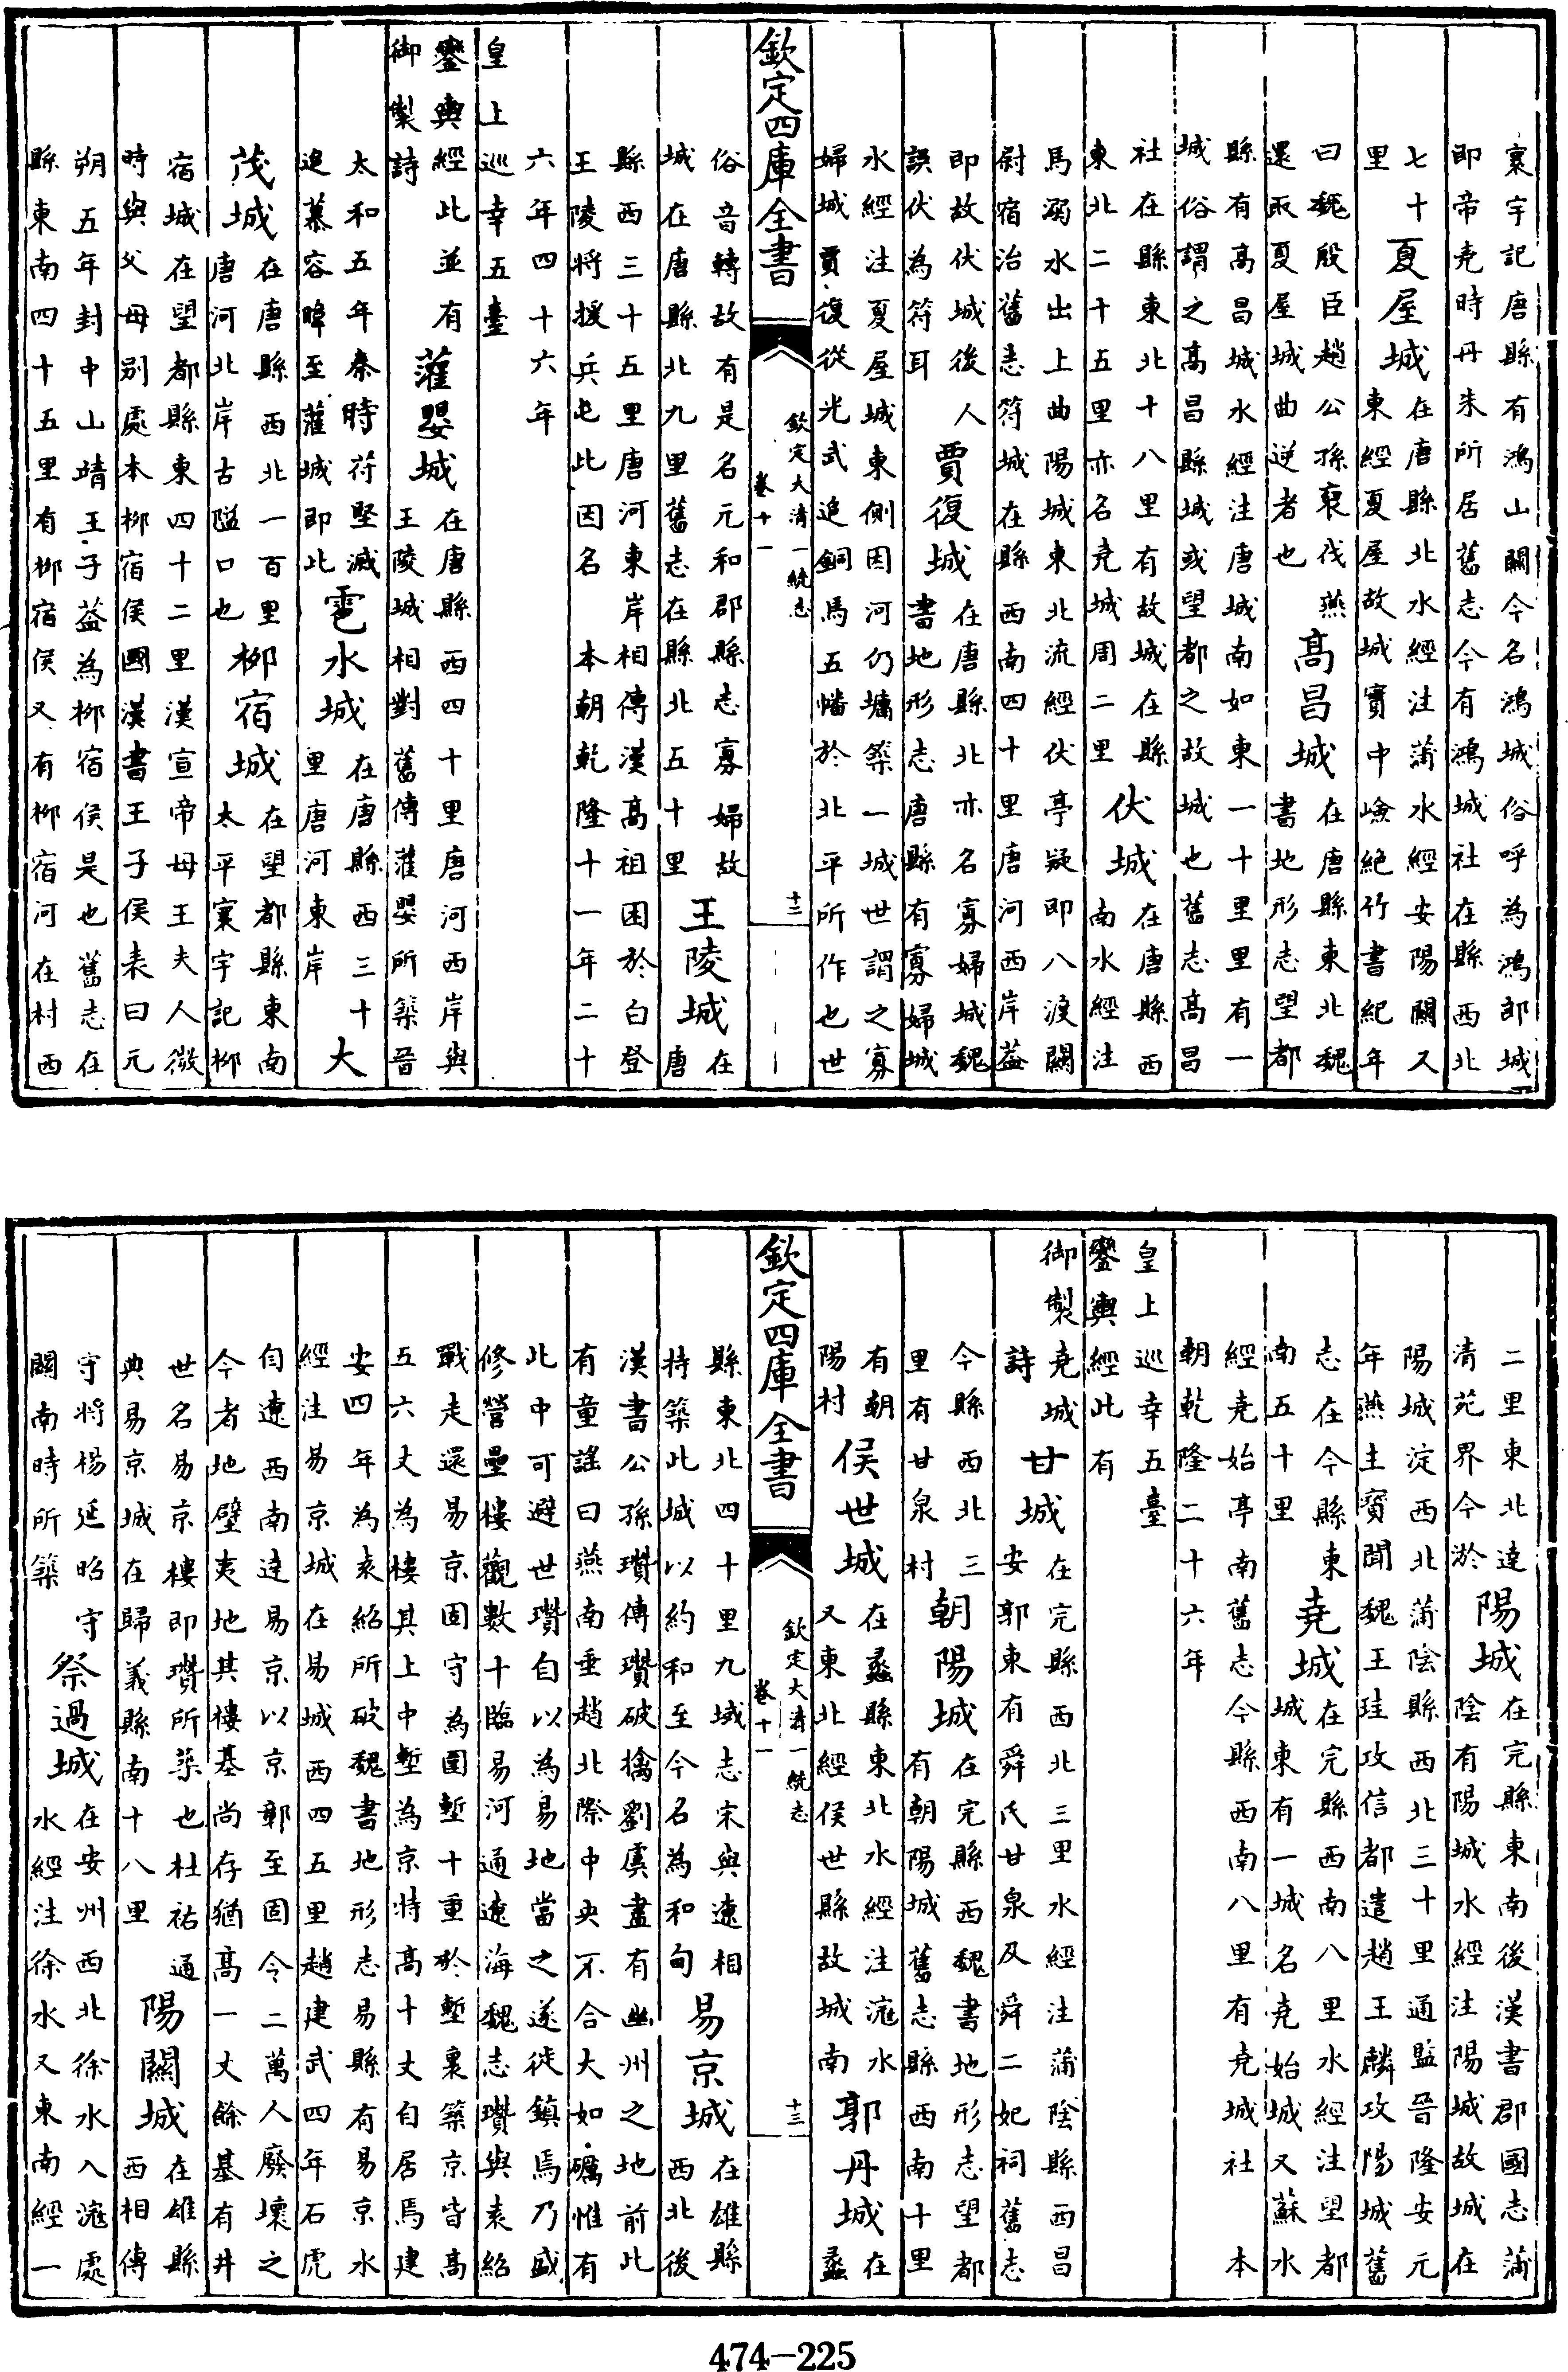 寰宇記唐縣有鴻山關今名鴻城俗呼為鴻郎城
即帝堯時丹朱所居舊志今有鴻城社在縣西北
七十里 夏屋城 在唐縣北水經注蒲水經安陽關又東經夏屋故城實中嶮絕竹書紀年
曰魏殷臣趙公孫裒伐燕還取夏屋城曲逆者也 高昌城 在唐縣東北魏書地形志望都
縣有高昌城水經注唐城南如東一十里里有一
城俗謂之高昌縣城或望都之故城也舊志高昌
社在縣東北十八里有故城在縣東北二十五里亦名堯城周二里 伏城 在唐縣西南水經注
馬溺水出上曲陽城東北流經伏亭疑即八渡關
尉宿治舊志符城在縣西南四十里唐河西岸蓋
即故伏城後人誤伏為符耳 賈復城 在唐縣北亦名寡婦城魏書地形志唐縣有寡婦城
水經注夏屋城東側因河仍墉築一城世謂之寡
婦城賈復從光武追銅馬五幡於北平所作也世
欽定四庫全書
欽定大清一統志
卷十一
十二
俗音轉故有是名元和郡縣志寡婦故城在唐縣北九里舊志在縣北五十里 王陵城 在唐
縣西三十五里唐河東岸相傳漢高祖困於白登
王陵將援兵屯此因名 本朝乾隆十一年二十
六年四十六年
皇上巡幸五臺
鑾輿經此並有
御製詩 灌嬰城 在唐縣西四十里唐河西岸與王陵城相對舊傳灌嬰所築晉
太和五年秦時苻堅滅追慕容暐至灌城即此 雹水城 在唐縣西三十里唐河東岸 大
茂城 在唐縣西北一百里唐河北岸古隘口也 柳宿城 在望都縣東南太平寰宇記柳
宿城在望都縣東四十二里漢宣帝母王夫人微
時與父母別處本柳宿侯國漢書王子侯表曰元
朔五年封中山靖王子益為柳宿侯是也舊志在
縣東南四十五里有柳宿侯又有柳宿河在村西
二里東北達清苑界今淤 陽城 在完縣東南後漢書郡國志蒲陰有陽城水經注陽城故城在
陽城淀西北蒲陰縣西北三十里通鑑晉隆安元
年燕主寶聞魏王珪攻信都遣趙王麟攻陽城舊
志在今縣東南五十里 堯城 在完縣西南八里水經注望都城東有一城名堯始城又蘇水
經堯始亭南舊志今縣西南八里有堯城社 本
朝乾隆二十六年
皇上巡幸五臺
鑾輿經此有
御製堯城詩 甘城 在完縣西北三里水經注蒲陰縣西昌安郭東有舜氏甘泉及舜二妃祠舊志
今縣西北三里有甘泉村 朝陽城 在完縣西魏書地形志望都有朝陽城舊志縣西南十里
有朝陽村 侯世城 在蠡縣東北水經注滱水又東北經侯世縣故城南 郭丹城 在蠡
縣東北四十里九域志宋與遼相持築此城以約和至今名為和甸 易京城 在雄縣西北後
漢書公孫瓚傳瓚破擒劉虞盡有幽州之地前此
有童謠曰燕南垂趙北際中央不合大如礪惟有
此中可避世瓚自以為易地當之遂徙鎮焉乃盛
修營壘樓觀數十臨易河通遼海魏志瓚與袁紹
戰走還易京固守為圍塹十重於塹裏築京皆高
五六丈為樓其上中塹為京特高十丈自居焉建
安四年為袁紹所破魏書地形志易縣有易京水
經注易京城在易城西四五里趙建武四年石虎
自遼西南達易京以京鄣至固今二萬人廢壞之
今者地壁夷地其樓基尚存猶高一丈餘基有井
世名易京樓即瓚所築也杜祐通典易京城在歸義縣南十八里 陽關城 在雄縣西相傳
守將楊延昭守關南時所築 祭過城 在安州西北徐水入滱處水經注徐水又東南經一
欽定四庫全書
欽定大清一統志
卷十一
十三
474-225